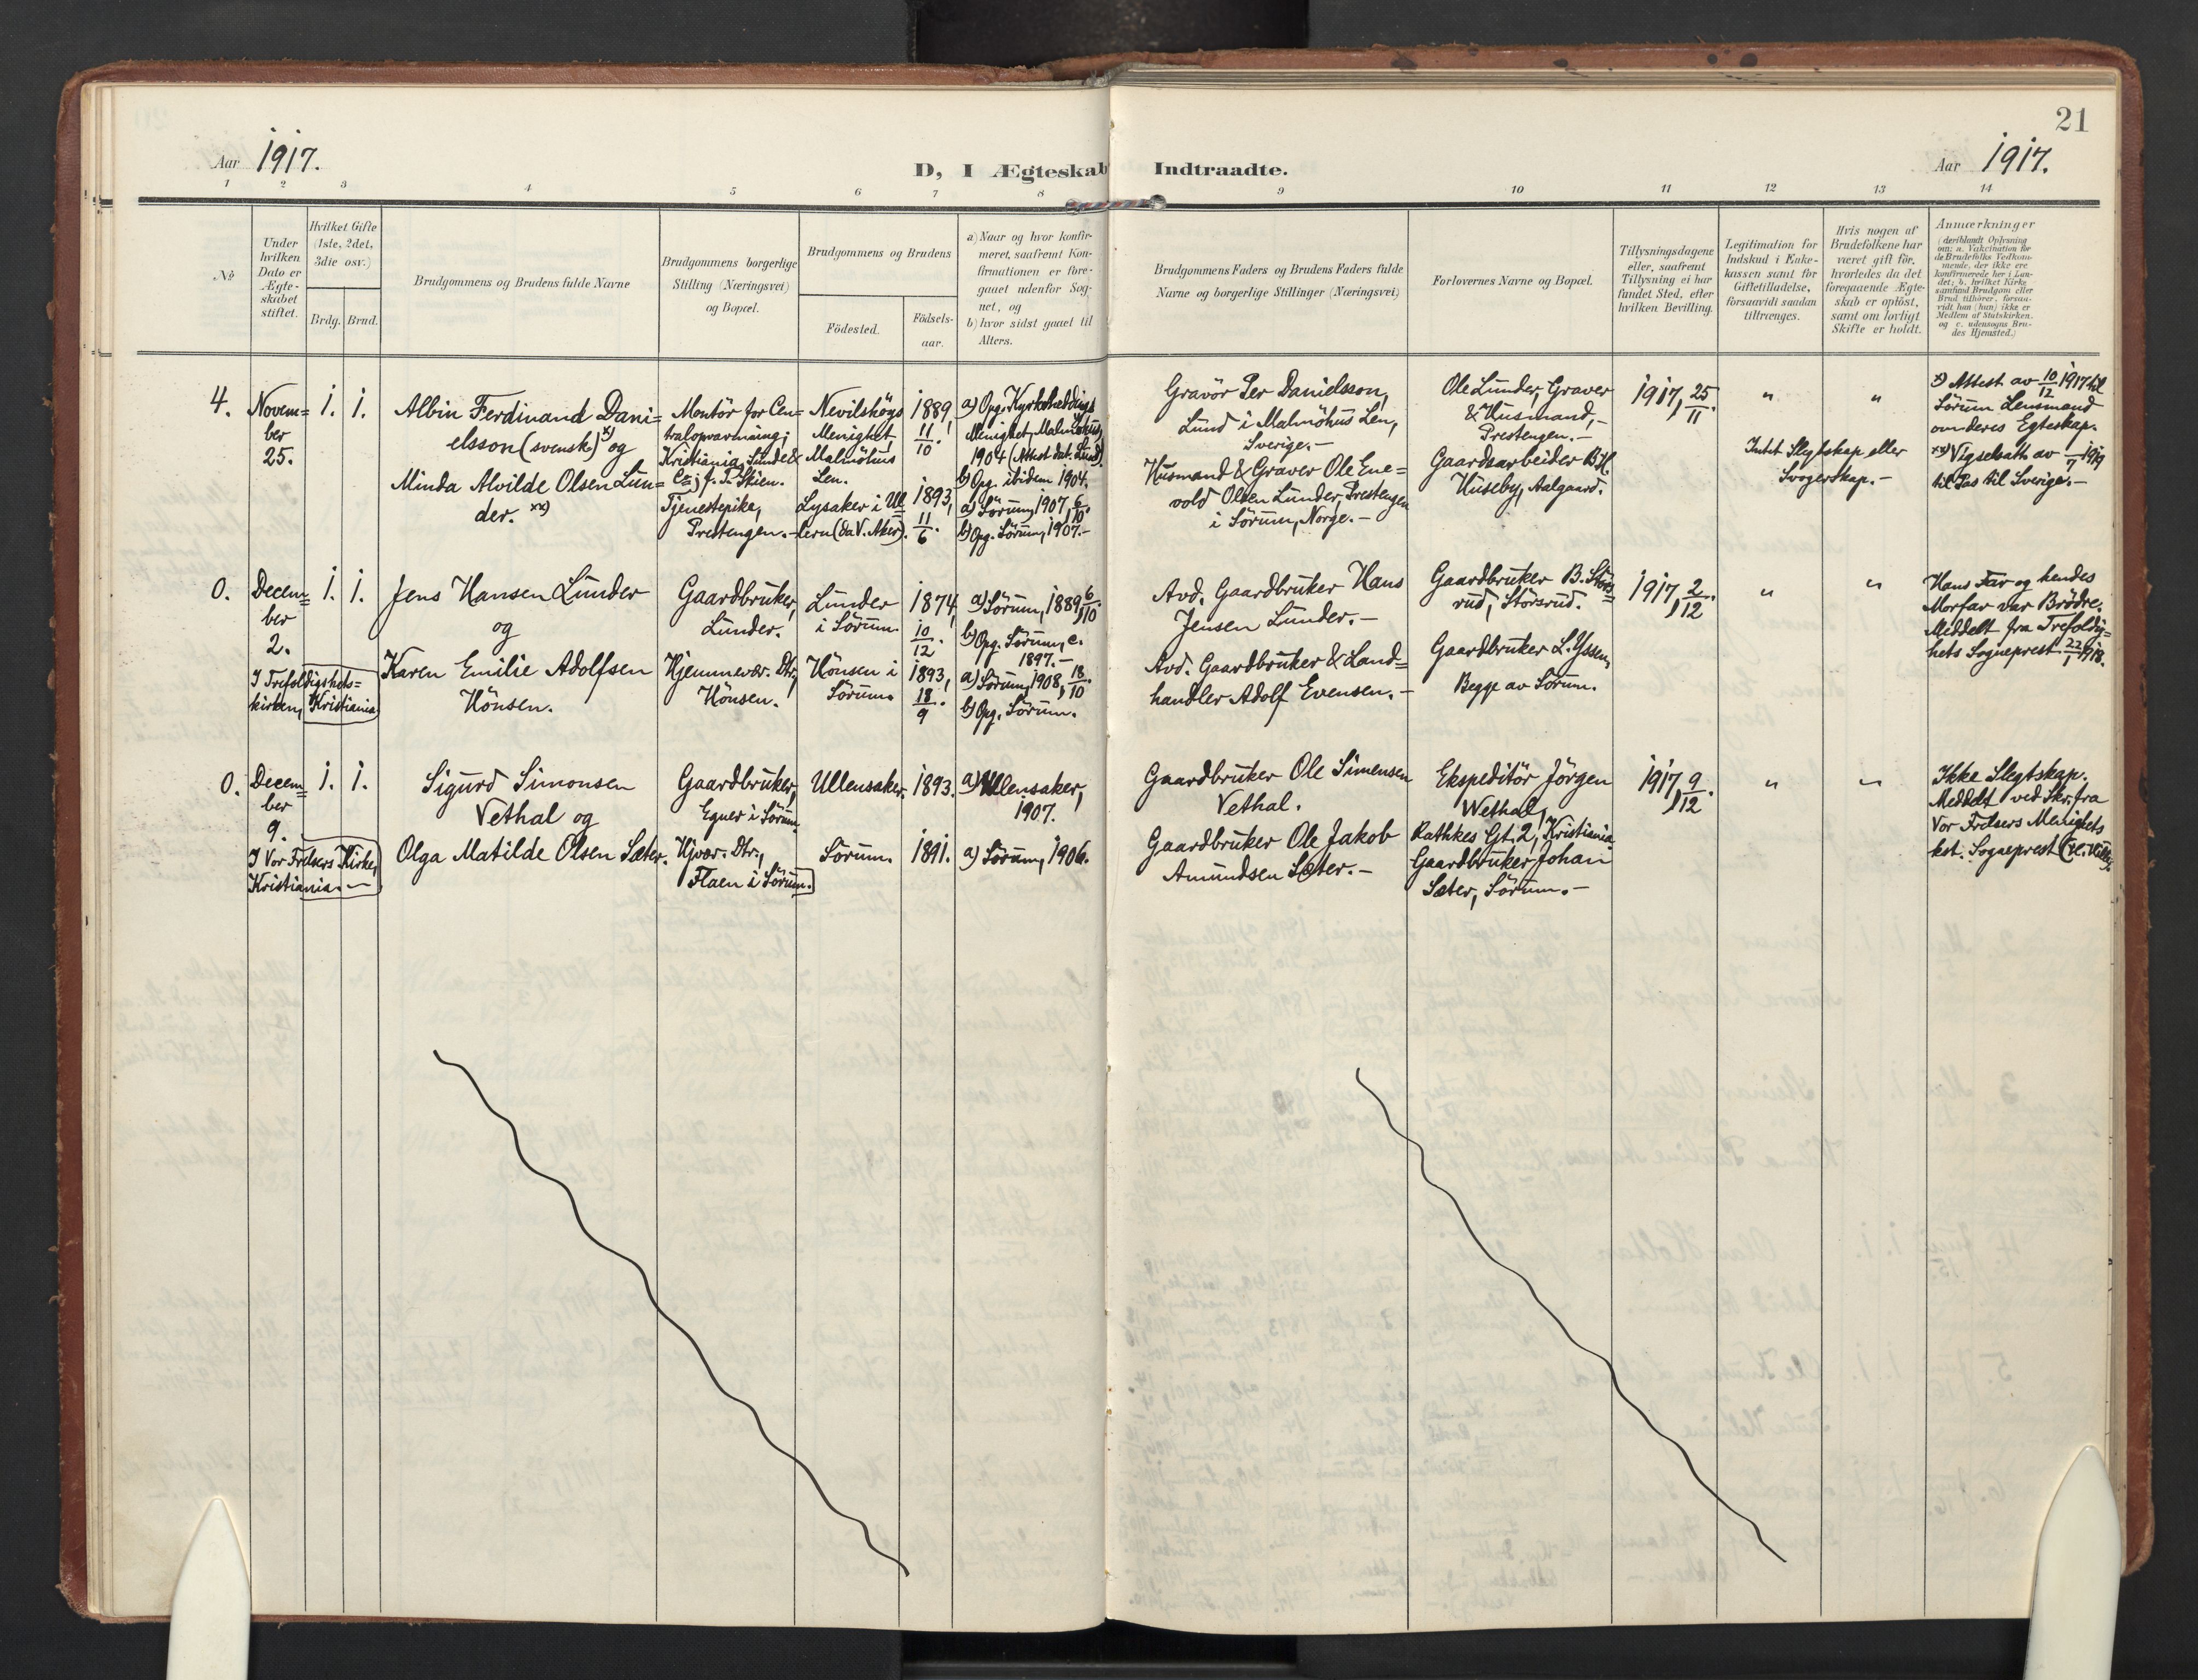 21
Aar 1917.
Aar 1917.
D, I Ægteskab Indtraadte.
1 2 3 4 5 6 7 8 9 10 11 12 13 14
No
Under
hvilken
Dato er
Ægte-
skabet
stiftet.
Hvilket Gifte
(1ste, 2det,
3die osv.)
Brdg. Brud.
Brudgommens og Brudens fulde Navne
Brudgommens borgerlige
Stilling (Næringsvei)
og Bopæl.
Brudgommens og Brudens
Födested.
Födsels-
aar.
a) Naar og hvor konfir-
meret, saafremt Kon-
firmationen er fore-
gaaet udenfor Sog-
net, og
b) hvor sidst gaaet til
Alters.
Brudgommens Faders og Brudens Faders fulde
Navne og borgerlige Stillinger (Næringsvei)
Forlovernes Navne og Bopæl.
Tillysningsdagene
eller, saafremt
Tillysning ei har
fundet Sted, efter
hvilken Bevilling.
Legitimation for
Indskud i Enke-
kassen samt for
Giftetilladelse,
forsaavidt saadan
tiltrænges.
Hvis nogen af
Brudefolkene har
været gift för,
hvorledes da det
foregaaende Ægte-
skab er oplöst,
samt om lovligt
Skifte er holdt.
Anmærkninger
(deriblandt Oplysning
om: a. Vakcination for
de Brudefolks Vedkom-
mende, der ikke ere
konfirmerede her i Lan-
det; b. hvilket Kirke-
samfund Brudgom eller
Brud tilhörer, forsaa-
vidt han (hun) ikke er
Medlem af Statskirken.
og c. udensogns Bru-
des Hjemsted.)
4.
Novem=
ber
25.
1. 1.
Albin Ferdinand Dani=
elsson (svensk) x) og
Minda Alvilde Olsen Lun=
der. xx)
Montör for Cen=
tralopvarming;
Kristiania, Sunde &
Co; f. T. Skien.
Tjenestepike,
Prestengen.-
Nevilshögs
Menighet,
Malmöhus
Len.
Lysaker i Ul=
lern (da V. Aker).
1889,
11/10.
1893,
11/6.
a) Opg. Kyrkoheddings
Menighet, Malmöhus,
1904 (Attest dat. Lund).
b) Opg. ibidem 1904.
a) Sörum, 1907, 6/10.
b) Opg. Sörum, 1907.-
Gravör Per Danielsson,
Lund i Malmöhus Len,
Sverige.-
Husmand & Graver Ole Ene=
vold Olsen Lunder, Prestengen
i Sörum, Norge.-
Ole Lunder, Graver
& Husmand,-
Prestengen.-
Gaardsarbeider B. H.
Huseby, Aalgaard.
1917, 25/11.
" "
Intet Slegtskap eller
Svogerskap.-
x) Attest av 10/12 1917 til
Sörum Lensmand
om deres Egteskap.
xx) Vigselsatt. av /7 1919
til Pas til Sverige.-
0.
Decem=
ber
2.
I Trefoldighets=
kirken, Kristiania
1. 1.
Jens Hansen Lunder
og
Karen Emilie Adolfsen
Hönsen.
Gaardbruker,
Lunder.
Hjemmevær. Dtr.,
Hönsen.
Lunder
i Sörum.
Hönsen i
Sörum.
1874,
10/12.
1893,
18/9.
a) Sörum, 1889, 6/10.
b) Opg. Sörum, c.
1897.-
a) Sörum, 1908, 18/10.
b) Opg. Sörum.
Avd. Gaardbruker Hans
Jensen Lunder.-
Avd. Gaardbruker & Land=
handler Adolf Evensen.-
Gaardbruker B. Störs=
rud, Störsrud.
Gaardbruker L. Yssen,
Begge av Sörum.
1917, 2/12.
" "
Hans Far og hendes
Morfar var Brödre.
Meddelt fra Trefoldig=
hets Sogneprest 22/1 1918.
0.
Decem=
ber
9.
I Vor Frelsers Kirke,
Kristiania.-
1. 1.
Sigurd Simonsen
Vethal og
Olga Matilde Olsen Sæter.
Gaardbruker,
Egner i Sörum.
Hjvær. Dtr.,
Flaen i Sörum.
Ullensaker.
Sörum.
1893.
1891.
a) Ullensaker,
1907.
a) Sörum, 1906.
Gaardbruker Ole Simensen
Vethal.
Gaardbruker Ole Jakob
Amundsen Sæter.-
Ekspeditör Jörgen
Wethal,
Rathkes Gt. 2, Kristiania.
Gaardbruker Johan
Sæter, Sörum.-
1917, 9/12.
" "
Ikke Slegtskap.
Meddelt ved Skr. fra
Vor Frelsers Menighets
kst. Sogneprest